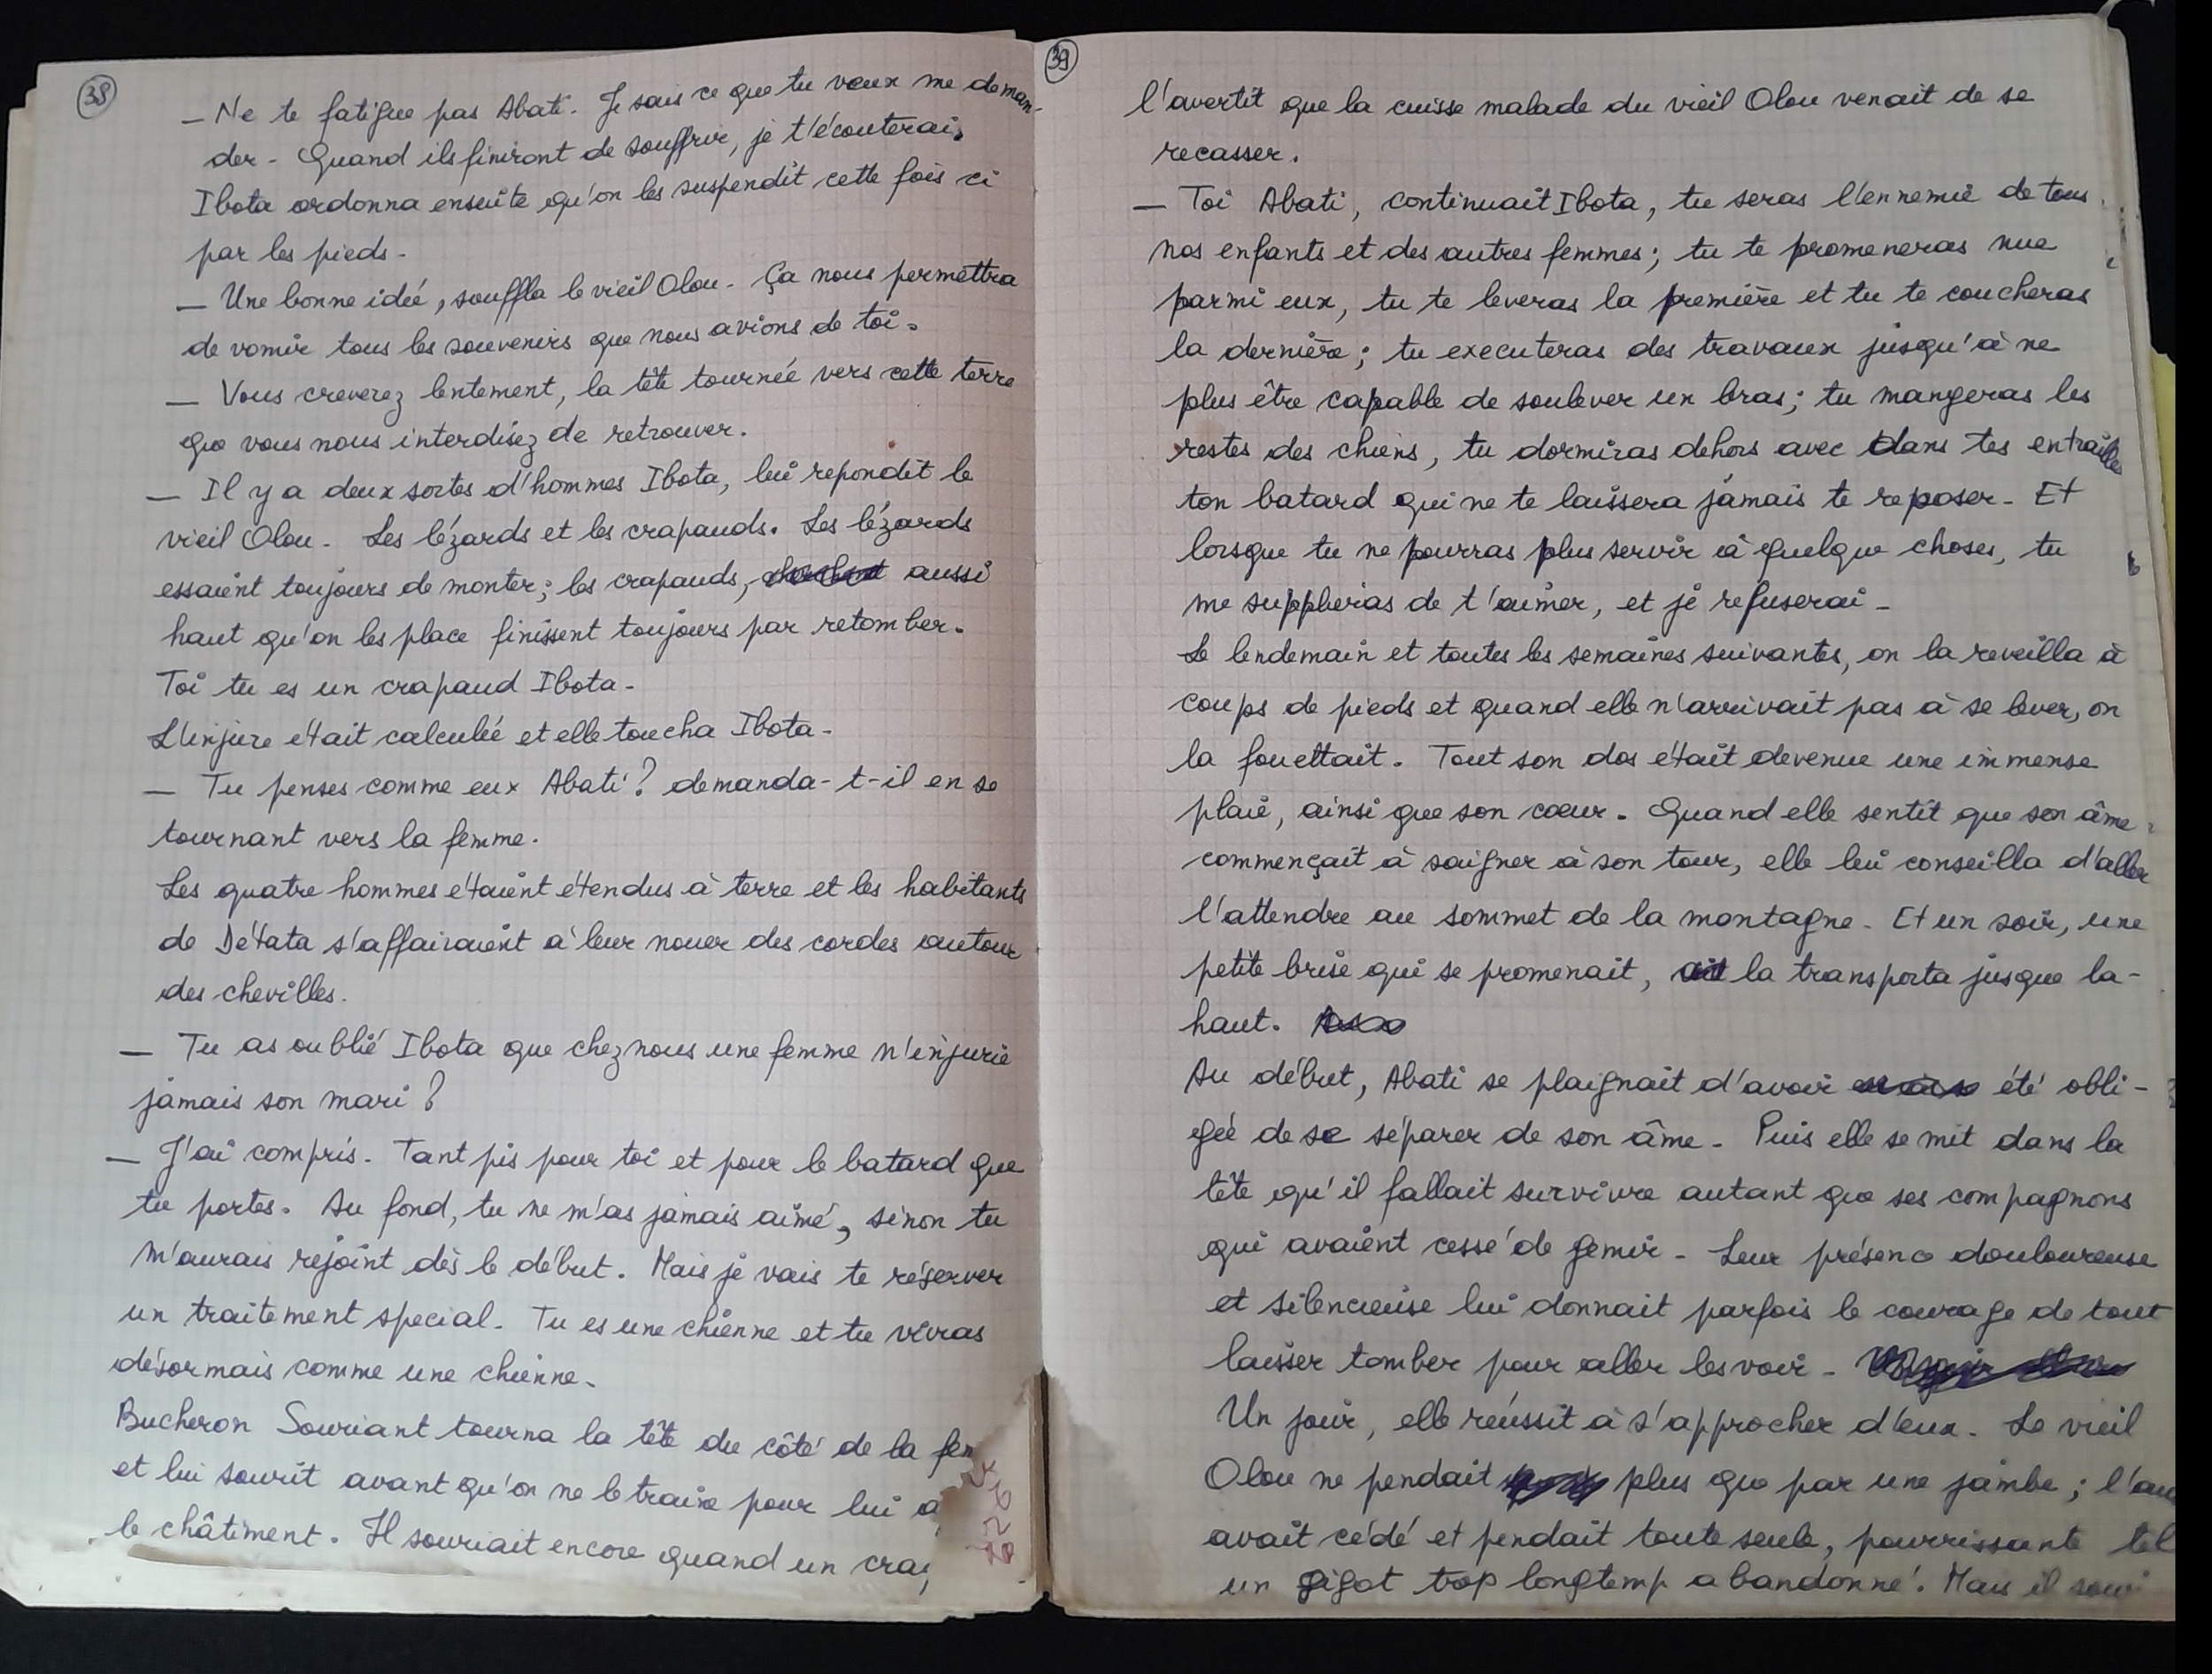 38
— Ne te fatigue pas Abati. Je sais ce que tu veux me deman-
der - Quand ils finiront de souffrir, je t'écouterai,
Ibota ordonna ensuite qu'on les suspendit cette fois ci
par les pieds -
— Une bonne idée, souffla le vieil Olou - Ça nous permettra
de vomir tous les souvenirs que nous avions de toi.
— Vous creverez lentement, la tête tournée vers cette terre
que vous nous interdisez de retrouver.
— Il y a deux sortes d'hommes Ibota, lui repondit le
vieil Olou - Les lézards et les crapauds. Les lézards
essaient toujours de monter; les crapauds, aussi
haut qu'on les place finissent toujours par retomber.
Toi tu es un crapaud Ibota -
L'injure était calculée et elle toucha Ibota -
— Tu penses comme eux Abati ? demanda-t-il en se
tournant vers la femme.
Les quatre hommes étaient étendus à terre et les habitants
de Détata s'affairaient à leur nouer des cordes autour
des chevilles.
— Tu as oublié Ibota que chez nous une femme n'injurie
jamais son mari ?
— J'ai compris - Tant pis pour toi et pour le batard que
tu portes. Au fond, tu ne m'as jamais aimé, sinon tu
m'aurais rejoint dès le début. Mais je vais te réserver
un traitement special - Tu es une chienne et tu vivras
désormais comme une chienne -
Bucheron Souriant tourna la tête du côté de la fem
et lui sourit avant qu'on ne le traine pour lui a
le châtiment. Il souriait encore quand un cra
39
l'avertit que la cuisse malade du vieil Olou venait de se
recasser.
— Toi Abati, continuait Ibota, tu seras l'ennemie de tous
nos enfants et des autres femmes; tu te promeneras nue
parmi eux, tu te leveras la première et tu te coucheras
la dernière; tu executeras des travaux jusqu'à ne
plus être capable de soulever un bras; tu mangeras les
restes des chiens, tu dormiras dehors avec dans tes entrailles
ton batard qui ne te laissera jamais te reposer - Et
lorsque tu ne pourras plus servir à quelque choses, tu
me supplieras de t'aimer, et je refuserai -
Le lendemain et toutes les semaines suivantes, on la reveilla à
coups de pieds et quand elle n'arrivait pas à se lever, on
la fouettait. Tout son dos était devenue une immense
plaie, ainsi que son cœur. Quand elle sentit que son âme
commençait à saigner à son tour, elle lui conseilla d'aller
l'attendre au sommet de la montagne - Et un soir, une
petite brise qui se promenait, la transporta jusque la-
haut.
Au début, Abati se plaignait d'avoir été obli-
gée de se séparer de son âme - Puis elle se mit dans la
tête qu'il fallait survivre autant que ses compagnons
qui avaient cessé de gemir - Leur présence douloureuse
et silencieuse lui donnait parfois le courage de tout
laisser tomber pour aller les voir -
Un jour, elle réussit à s'approcher d'eux - Le vieil
Olou ne pendait plus que par une jambe; l'au
avait cédé et pendait toute seule, pourrissante tel
un gigot trop longtemp abandonné. Mais il souri